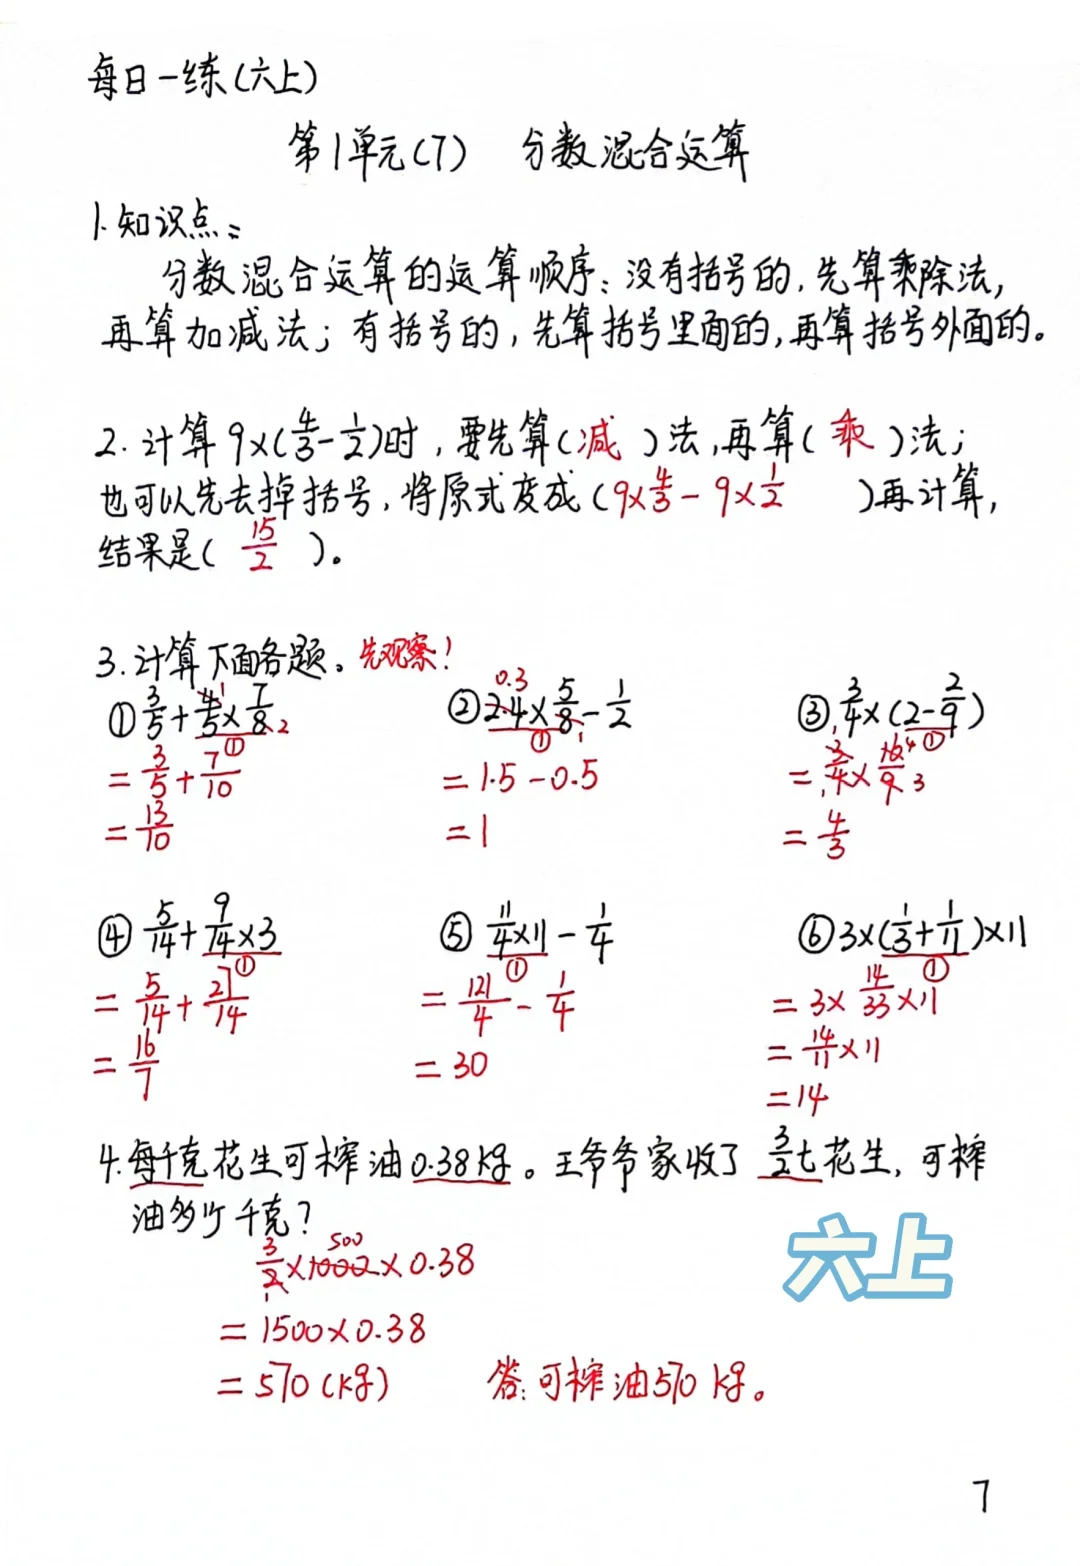 每日一练(六上)
第1单元(7) 分数混合运算
1.知识点:
分数混合运算的运算顺序:没有括号的,先算乘除法,
再算加减法;有括号的,先算括号里面的,再算括号外面的。
2.计算9×(4/3-1/2)时,要先算(减)法,再算(乘)法;
也可以先去掉括号,将原式变成(9×4/3-9×1/2)再计算,
结果是(15/2)。
3.计算下面各题。先观察!
①3/5+4/5×7/8 1 2 ①
=3/5+7/10
=13/10
②2.4×5/8-1/2 0.3 1 ①
=1.5-0.5
=1
③3/4×(2-2/9) ①
=3/4×16/9 1 1 4 3
=4/3
④5/14+9/14×3 ①
=5/14+27/14
=16/7
⑤11/4×11-1/4 ①
=121/4-1/4
=30
⑥3×(1/3+1/11)×11 ①
=3×14/33×11
=14/11×11
=14
4.每千克花生可榨油0.38kg。王爷爷家收了3/2t花生,可榨
油多少千克?
六上
3/2×1000×0.38 500 1
=1500×0.38
=570(kg) 答:可榨油570kg。
7